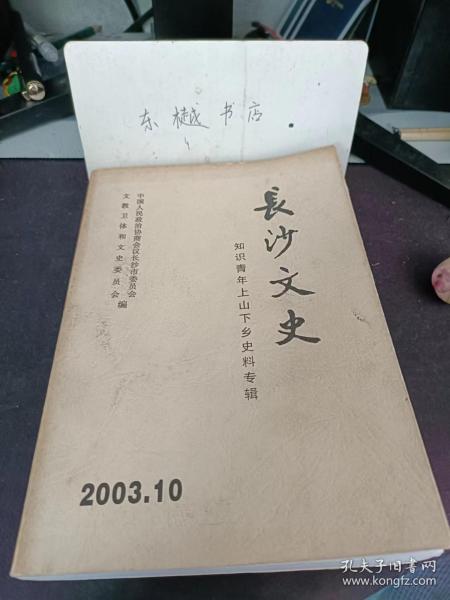 东樾书店
長沙文史
知识青年上山下乡史料专辑
中国人民政治协商会议长沙市委员会
文教卫体和文史委员会 编
2003.10
孔夫子旧书网
www.kongfz.com